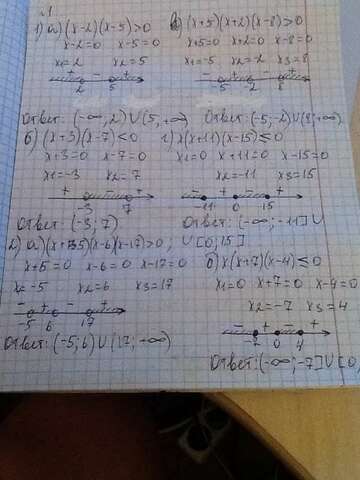 1
1) а) (x-2)(x-5)>0
x-2=0 x-5=0
x1=2 x2=5
+ - +
2 5
Ответ: (-∞; 2) U (5, +∞
в) (x+5)(x+2)(x-8)>0
x+5=0 x+2=0 x-8=0
x1=-5 x2=-2 x3=8
- + - +
-5 -2 8
Ответ: (-5;-2) U (8; +∞)
б) (x+3)(x-7)<0
x+3=0 x-7=0
x1=-3 x2=7
+ - +
-3 7
Ответ: (-3; 7)
г) x(x+11)(x-15)≤0
x1=0 x+11=0 x-15=0
x2=-11 x3=15
- + - +
-11 0 15
Ответ: (-∞; -11] U
U [0; 15]
2) а) (x+5)(x-6)(x-17)>0;
x+5=0 x-6=0 x-17=0
x1=-5 x2=6 x3=17
- + - +
-5 6 17
Ответ: (-5; 6) U (17; +∞)
б) x(x+7)(x-4)≤0
x1=0 x+7=0 x-4=0
x2=-7 x3=4
- + - +
-7 0 4
Ответ: (-∞; -7] U [0,